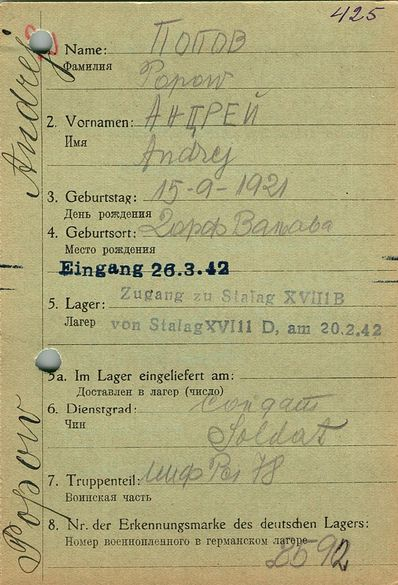 425
1. Name: ПОПОВ
Фамилия
Popow
2. Vornamen: АНДРЕЙ
Имя
Andrej
3. Geburtstag: 15-9-1921
День рождения
4. Geburtsort:
Место рождения
Eingang 26.3.42
5. Lager: Zugang zu Stalag XVIII B
Лагер von Stalag XVIII D, am 20.2.42
5a. Im Lager eingeliefert am:
Доставлен в лагер (число)
6. Dienstgrad:
Чин
Soldat
7. Truppenteil: 78
Воинская часть
8. Nr. der Erkennungsmarke des deutschen Lagers:
Номер военнопленного в германском лагере
8592
Andrej
Popow